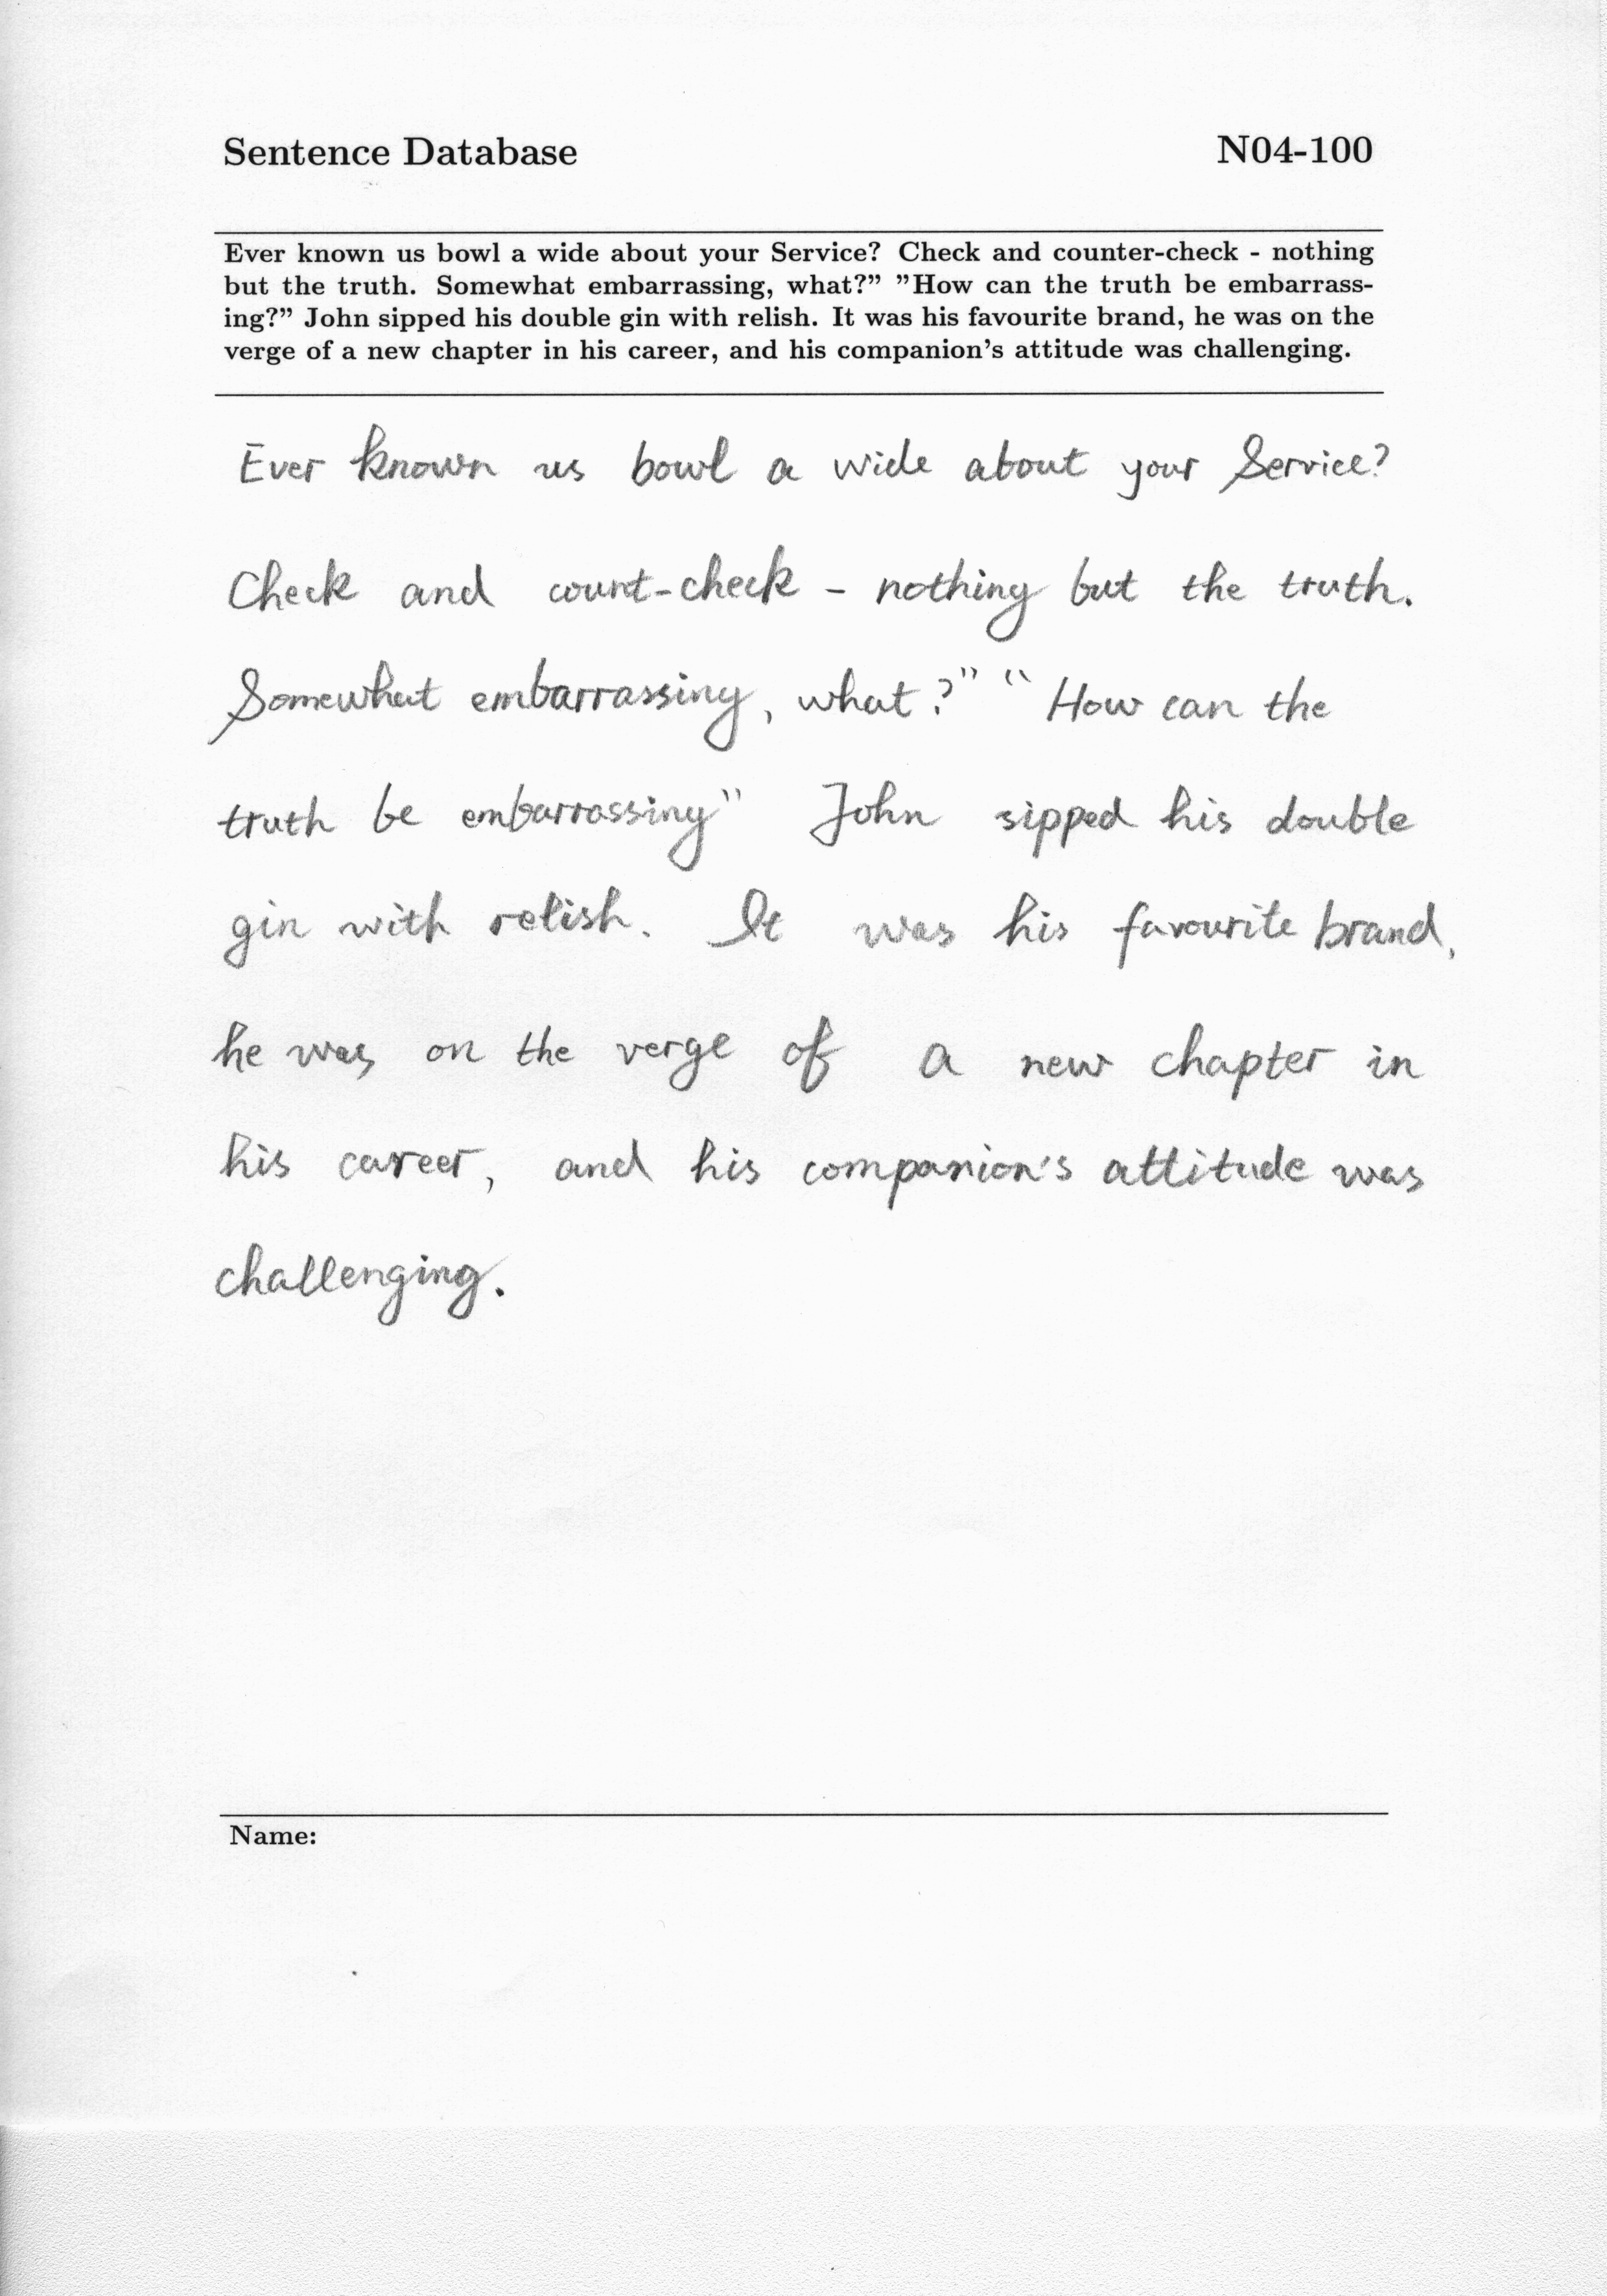 Sentence Database N04-100
Ever known us bowl a wide about your Service? Check and counter-check - nothing
but the truth. Somewhat embarrassing, what?" "How can the truth be embarrass-
ing?" John sipped his double gin with relish. It was his favourite brand, he was on the
verge of a new chapter in his career, and his companion's attitude was challenging.
Ever known us bowl a wide about your Service?
Check and count-check - nothing but the truth.
Somewhat embarrassing, what?" "How can the
truth be embarrassing" John sipped his double
gin with relish. It was his favourite brand,
he was on the verge of a new chapter in
his career, and his companion's attitude was
challenging.
Name: